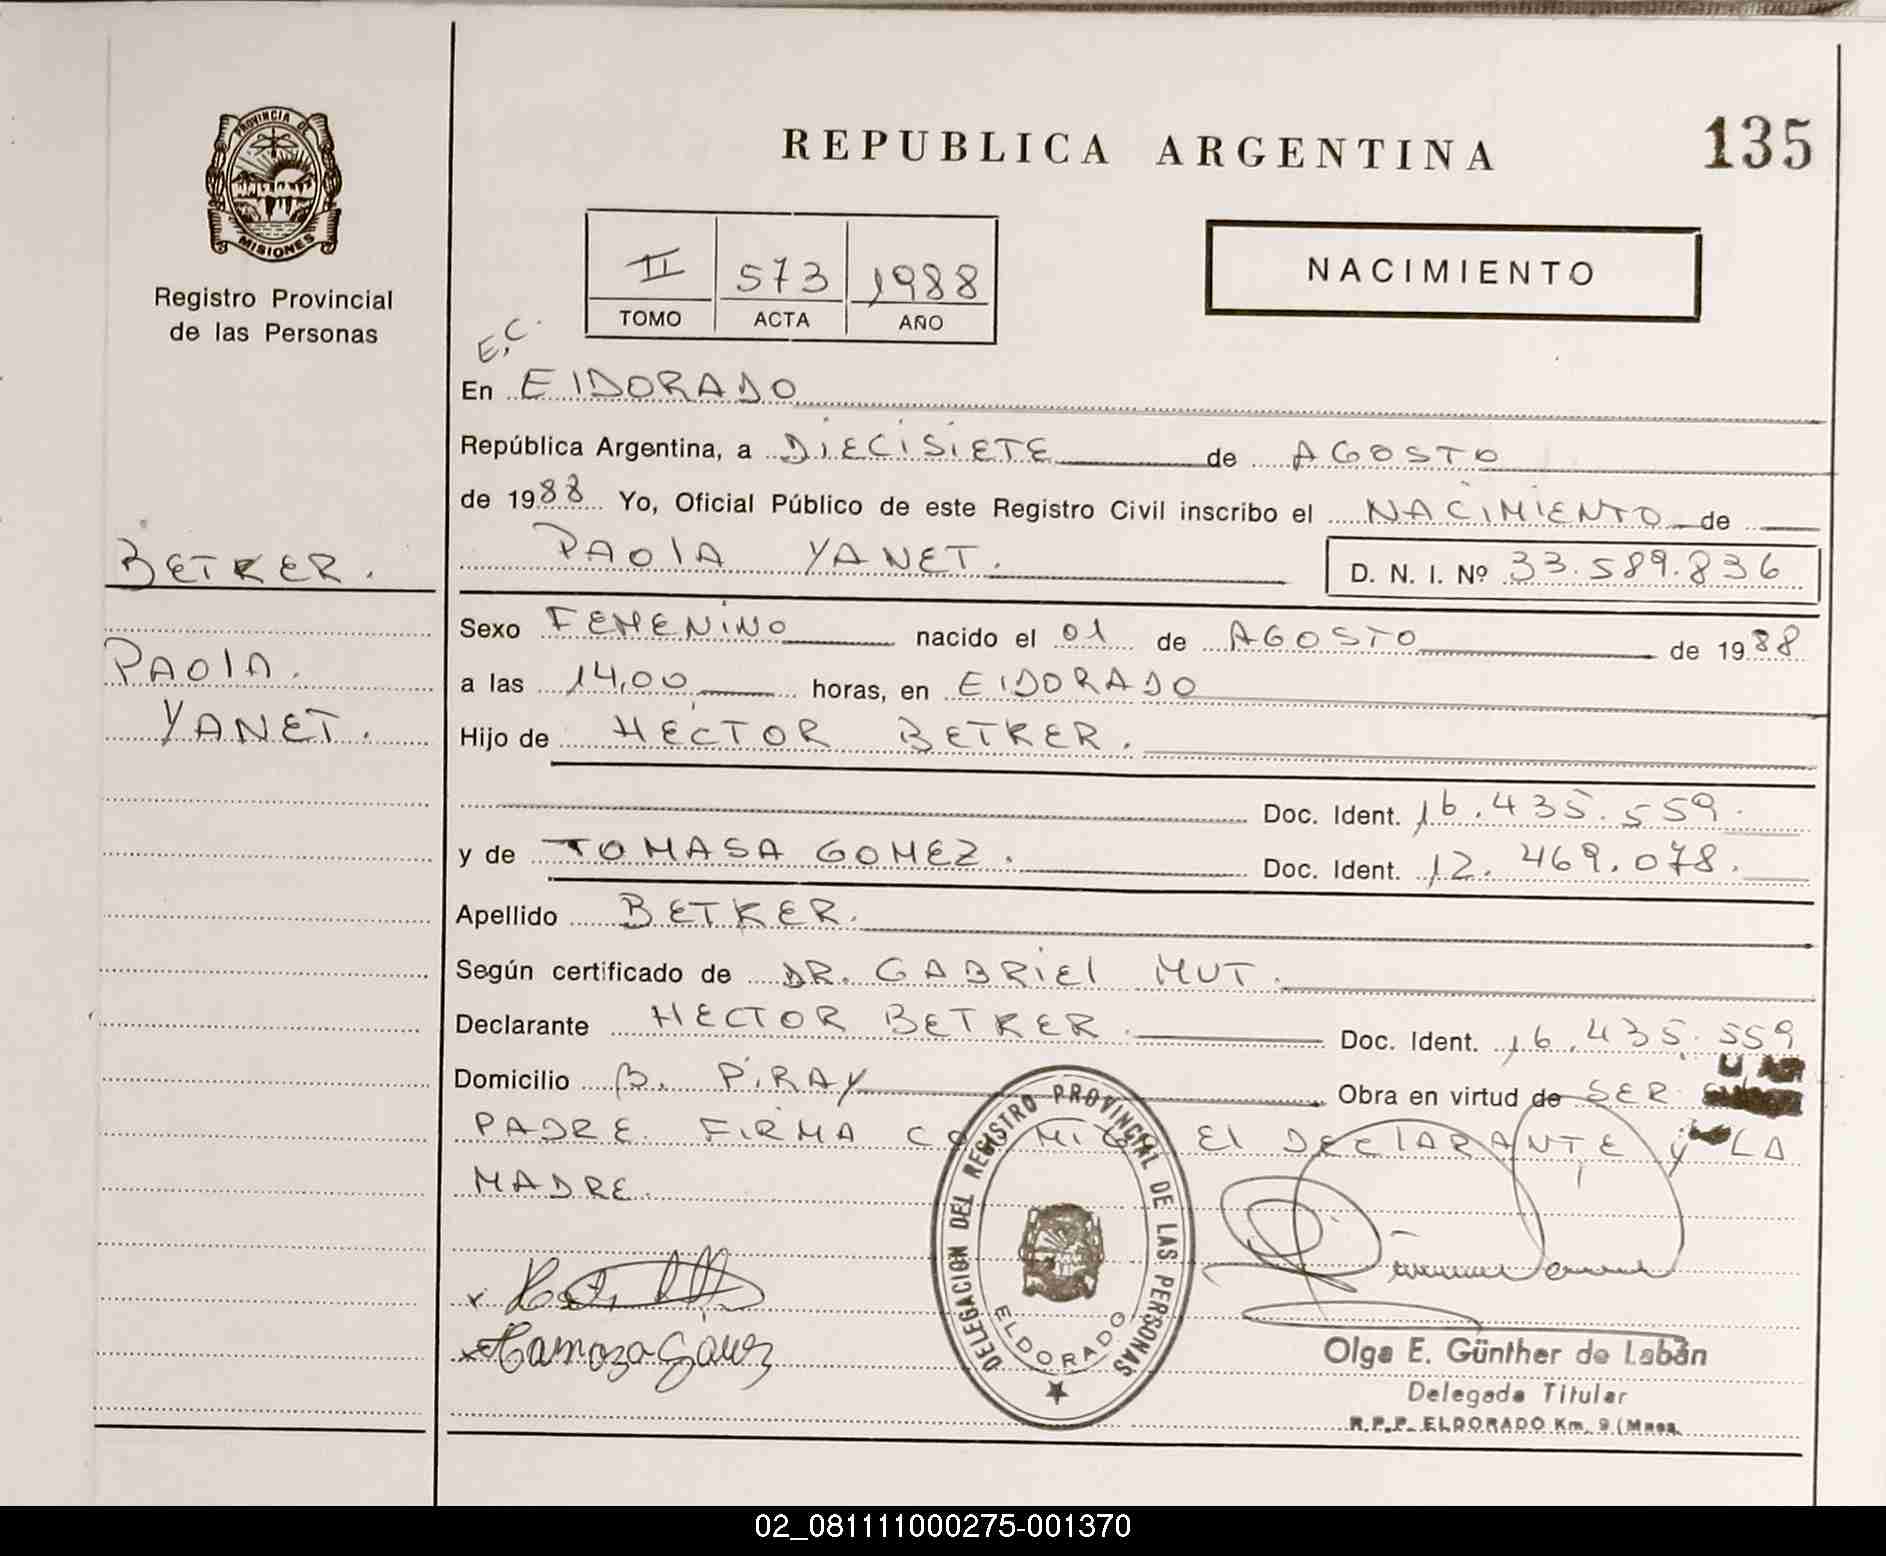 PROVINCIA DE
MISIONES
Registro Provincial
de las Personas
BETKER.
PAOlA.
YANET.
REPUBLICA ARGENTINA
135
II 573 1988
TOMO ACTA AÑO
NACIMIENTO
E.C.
En ElDORADO
República Argentina, a DIECISIETE de AGOSTO
de 1988 Yo, Oficial Público de este Registro Civil inscribo el NACIMIENTO de
PAOlA YANET. D. N. I. Nº 33.589.836
Sexo FEMENINO nacido el 01 de AGOSTO de 1988
a las 14,00 horas, en ElDORADO
Hijo de HECTOR BETKER.
Doc. Ident. 16.435.559.
y de TOMASA GOMEZ. Doc. Ident. 12.469.078.
Apellido BETKER.
Según certificado de DR. GABRIEl MUT.
Declarante HECTOR BETKER. Doc. Ident. 16.435.559
Domicilio B. PIRAY Obra en virtud de SER
PADRE. FIRMA El DEClARANTE y LA
MADRE.
DELEGACION DEL REGISTRO PROVINCIAL DE LAS PERSONAS
ELDORADO
Olga E. Günther de Labán
Delegada Titular
R.P.P. ELDORADO Km. 9 (Mnes.
02_081111000275-001370